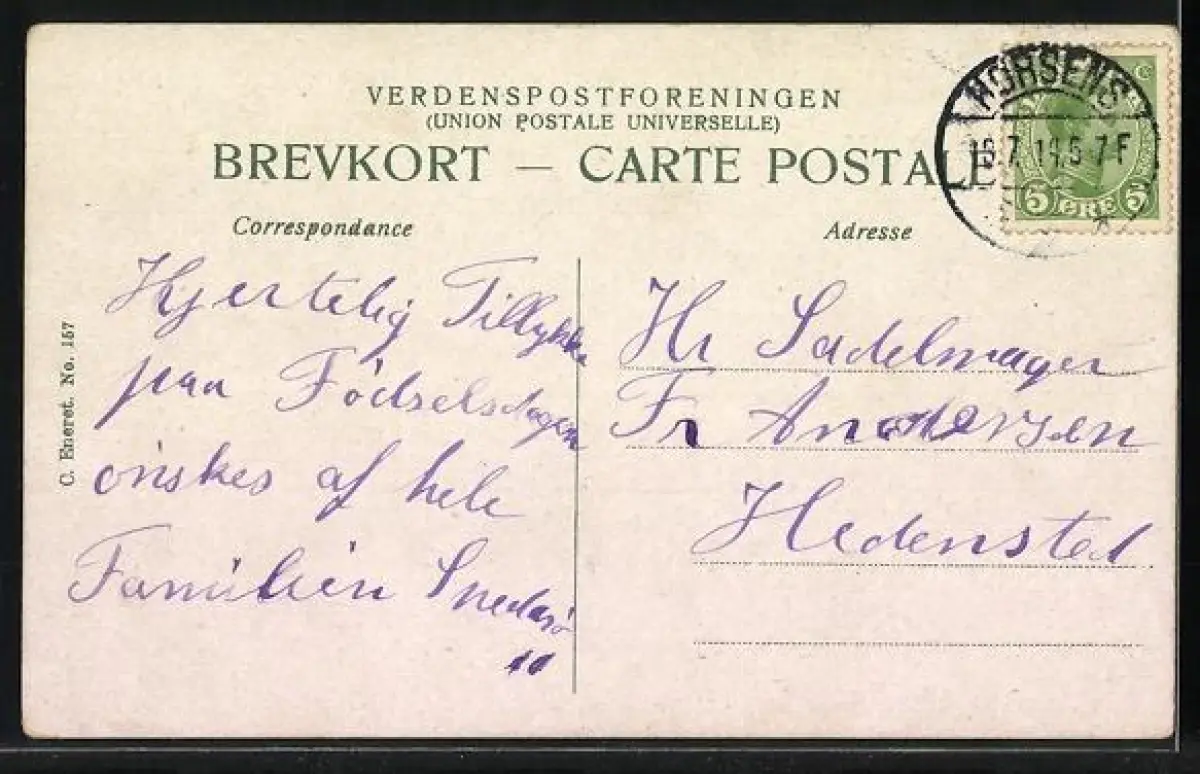 VERDENSPOSTFORENINGEN
(UNION POSTALE UNIVERSELLE)
BREVKORT — CARTE POSTALE
HORSENS
7F
5 ØRE 5
Correspondance
Adresse
Hjertelig Tillykke
paa Födselsdagen
önskes af hele
Familien
Hr Sadelmager
Fr Andersen
Hedensted
C. Eneret. No. 157